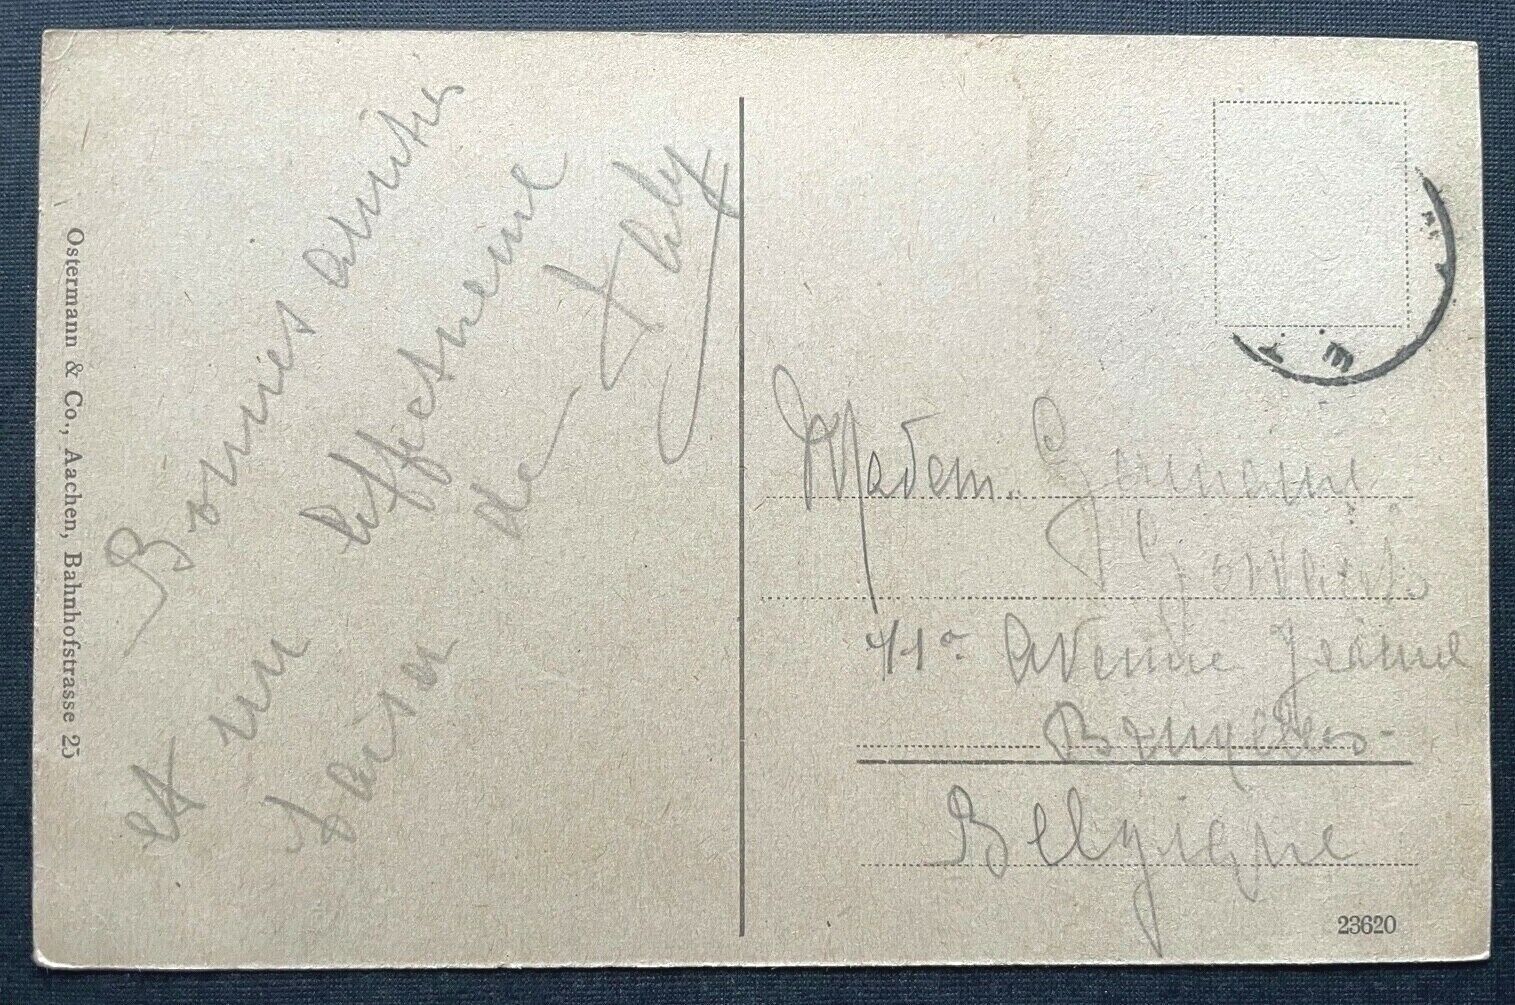 Bonnes amitiés
et un affectueux
baiser de
Gaby
Ostermann & Co., Aachen, Bahnhofstrasse 25
Madem. Germaine
41ᵃ Avenue Jeanne
Bruxelles-
Belgique
23620